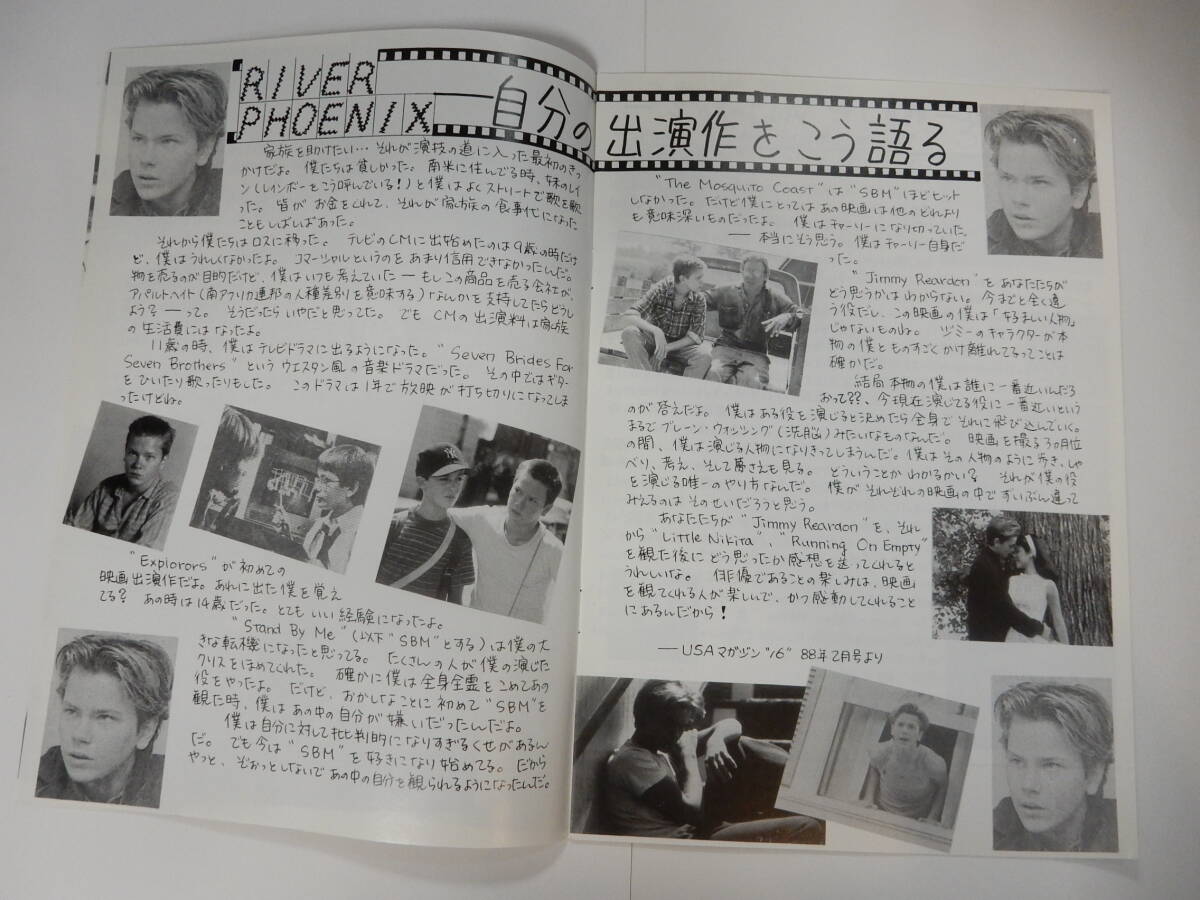 RIVER
PHOENIX
―自分の出演作をこう語る
家族を助けたい… それが演技の道に入った最初のきっ
かけだよ。 僕たちは貧しかった。 南米に住んでる時、妹のレイ
ン(レインボーをこう呼んでいる!)と僕はよくストリートで歌を歌
った。 皆がお金をくれて、それが家族の食事代になった
こともしばしばあった。
それから僕たちはロスに移った。 テレビのCMに出始めたのは9歳の時だけ
ど、僕はうれしくなかったよ。 コマーシャルというのをあまり信用できなかったんだ。
物を売るのが目的だけど、僕はいつも考えていた ― もしこの商品を売る会社が、
アパルトヘイト(南アフリカ連邦の人種差別を意味する)なんかを支持してたらどうし
よう? ― って。 そうだったらいやだと思ってた。 でもCMの出演料は家族
の生活費にはなったよ。
11歳の時、僕はテレビドラマに出るようになった。 "Seven Brides For
Seven Brothers" という ウエスタン風の音楽ドラマだった。 その中ではギター
をひいたり歌ったりもした。 このドラマは1年で放映が打ち切りになってしま
ったけどね。
"Explorors" が初めての
映画出演作だよ。あれに出た僕を覚え
てる? あの時は14歳だった。とてもいい経験になったよ。
"Stand By Me" (以下 "SBM" とする) は僕の大
きな転機になったと思ってる。 たくさんの人が僕の演じた
クリスをほめてくれた。 確かに僕は全身全霊をこめてあの
役をやったよ。 だけど、おかしなことに初めて "SBM" を
観た時、僕はあの中の自分が嫌いだったんだよ。
僕は自分に対して批判的になりすぎるくせがあるん
だ。 でも今は "SBM" を好きになり始めてる。 だから
やっと、ぞおっとしないであの中の自分を観られるようになったんだ。
"The Mosquito Coast" は "SBM" ほどヒット
しなかった。だけど僕にとってはあの映画は他のどれより
も意味深いものだったよ。 僕はチャーリーになり切っていた。
― 本当にそう思う。 僕はチャーリー自身だ
った。
"Jimmy Reardon" をあなたたちが
どう思うかはわからない。 今までと全く違
う役だし、この映画の僕は「好ましい人物」
じゃないものね。 ジミーのキャラクターが本
物の僕とものすごくかけ離れてるってことは
確かだ。
結局本物の僕は誰に一番近いんだろ
おって??、今現在演じてる役に一番近いという
のが答えだよ。 僕はある役を演じると決めたら全身でそれに飛び込んでいく。
まるでブレーン・ウォッシング(洗脳)みたいなものなんだ。 映画を撮る3ヵ月位
の間、僕は演じる人物になりきってしまうんだ。僕はその人物のように歩き、しゃ
べり、考え、そして夢さえも見る。 どういうことかわかるかい? それが僕の役
を演じる唯一のやり方なんだ。 僕がそれぞれの映画の中でずいぶん違って
みえるのはそのせいだろうと思う。
あなたたちが "Jimmy Reardon" を、それ
から "Little Nikita"、"Running On Empty"
を観た後にどう思ったか感想を送ってくれると
うれしいな。 俳優であることの楽しみは、映画
を観てくれる人が楽しんで、かつ感動してくれること
にあるんだから!
― USAマガジン "16" 88年2月号より